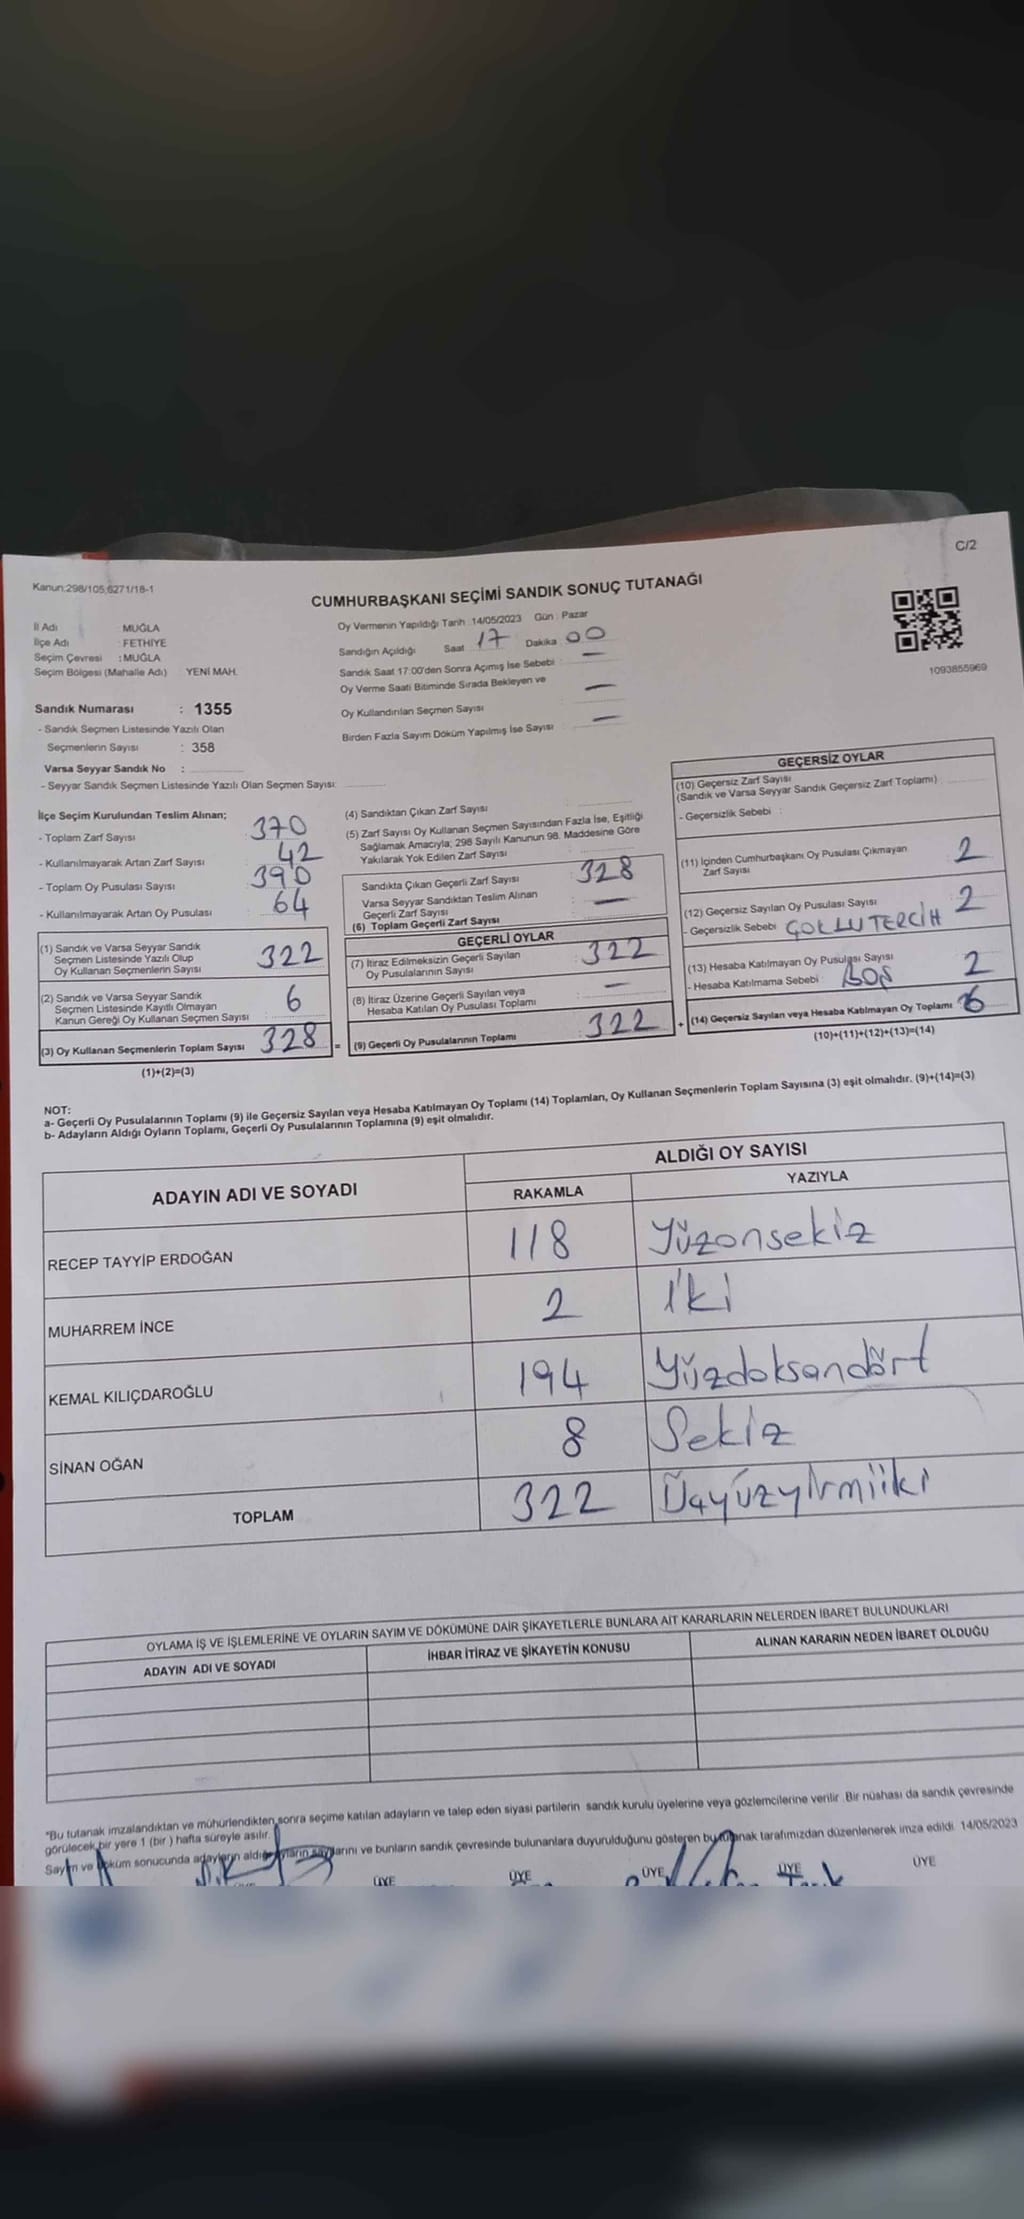 C/2
Kanun:298/105,6271/18-1
CUMHURBAŞKANI SEÇİMİ SANDIK SONUÇ TUTANAĞI
1093855969
İl Adı : MUĞLA
İlçe Adı : FETHİYE
Seçim Çevresi : MUĞLA
Seçim Bölgesi (Mahalle Adı) YENİ MAH.
Sandık Numarası : 1355
- Sandık Seçmen Listesinde Yazılı Olan
Seçmenlerin Sayısı : 358
Varsa Seyyar Sandık No :
- Seyyar Sandık Seçmen Listesinde Yazılı Olan Seçmen Sayısı:
Oy Vermenin Yapıldığı Tarih :14/05/2023 Gün : Pazar
Sandığın Açıldığı Saat 17 Dakika 00
Sandık Saat 17:00'den Sonra Açımış İse Sebebi : —
Oy Verme Saati Bitiminde Sırada Bekleyen ve
Oy Kullandırılan Seçmen Sayısı —
Birden Fazla Sayım Döküm Yapılmış İse Sayısı —
İlçe Seçim Kurulundan Teslim Alınan;
- Toplam Zarf Sayısı : 370
- Kullanılmayarak Artan Zarf Sayısı : 42
- Toplam Oy Pusulası Sayısı : 390
- Kullanılmayarak Artan Oy Pusulası : 64
(1) Sandık ve Varsa Seyyar Sandık
Seçmen Listesinde Yazılı Olup
Oy Kullanan Seçmenlerin Sayısı 322
(2) Sandık ve Varsa Seyyar Sandık
Seçmen Listesinde Kayıtlı Olmayan
Kanun Gereği Oy Kullanan Seçmen Sayısı : 6
(3) Oy Kullanan Seçmenlerin Toplam Sayısı 328
(1)+(2)=(3)
(4) Sandıktan Çıkan Zarf Sayısı
(5) Zarf Sayısı Oy Kullanan Seçmen Sayısından Fazla İse, Eşitliği
Sağlamak Amacıyla; 298 Sayılı Kanunun 98. Maddesine Göre
Yakılarak Yok Edilen Zarf Sayısı
Sandıkta Çıkan Geçerli Zarf Sayısı : 328
Varsa Seyyar Sandıktan Teslim Alınan
Geçerli Zarf Sayısı : —
(6) Toplam Geçerli Zarf Sayısı
GEÇERLİ OYLAR
(7) İtiraz Edilmeksizin Geçerli Sayılan
Oy Pusulalarının Sayısı : 322
(8) İtiraz Üzerine Geçerli Sayılan veya
Hesaba Katılan Oy Pusulası Toplamı : —
= (9) Geçerli Oy Pusulalarının Toplamı : 322 +
GEÇERSİZ OYLAR
(10) Geçersiz Zarf Sayısı
(Sandık ve Varsa Seyyar Sandık Geçersiz Zarf Toplamı) :
- Geçersizlik Sebebi :
(11) İçinden Cumhurbaşkanı Oy Pusulası Çıkmayan
Zarf Sayısı : 2
(12) Geçersiz Sayılan Oy Pusulası Sayısı : 2
- Geçersizlik Sebebi ÇOKLU TERCİH
(13) Hesaba Katılmayan Oy Pusulası Sayısı : 2
- Hesaba Katılmama Sebebi : BOŞ
(14) Geçersiz Sayılan veya Hesaba Katılmayan Oy Toplamı : 6
(10)+(11)+(12)+(13)=(14)
NOT:
a- Geçerli Oy Pusulalarının Toplamı (9) ile Geçersiz Sayılan veya Hesaba Katılmayan Oy Toplamı (14) Toplamları, Oy Kullanan Seçmenlerin Toplam Sayısına (3) eşit olmalıdır. (9)+(14)=(3)
b- Adayların Aldığı Oyların Toplamı, Geçerli Oy Pusulalarının Toplamına (9) eşit olmalıdır.
ADAYIN ADI VE SOYADI
ALDIĞI OY SAYISI
RAKAMLA YAZIYLA
RECEP TAYYİP ERDOĞAN 118 Yüzonsekiz
MUHARREM İNCE 2 İki
KEMAL KILIÇDAROĞLU 194 Yüzdoksandört
SİNAN OĞAN 8 Sekiz
TOPLAM 322 Üçyüzyirmiiki
OYLAMA İŞ VE İŞLEMLERİNE VE OYLARIN SAYIM VE DÖKÜMÜNE DAİR ŞİKAYETLERLE BUNLARA AİT KARARLARIN NELERDEN İBARET BULUNDUKLARI
ADAYIN ADI VE SOYADI İHBAR İTİRAZ VE ŞİKAYETİN KONUSU ALINAN KARARIN NEDEN İBARET OLDUĞU
*Bu tutanak imzalandıktan ve mühürlendikten sonra seçime katılan adayların ve talep eden siyasi partilerin sandık kurulu üyelerine veya gözlemcilerine verilir. Bir nüshası da sandık çevresinde
görülecek bir yere 1 (bir ) hafta süreyle asılır.
Sayım ve döküm sonucunda adayların aldığı oyların sayılarını ve bunların sandık çevresinde bulunanlara duyurulduğunu gösteren bu tutanak tarafımızdan düzenlenerek imza edildi. 14/05/2023
ÜYE ÜYE ÜYE ÜYE ÜYE